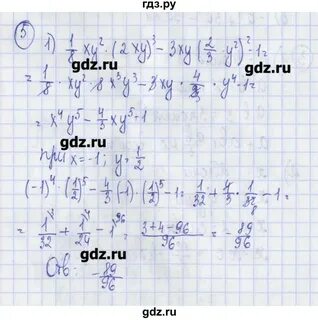 гдз.ру
5
1) 1/8 xy² · (2xy)³ - 3xy (2/3 · y²)² - 1 =
= 1/8 · xy² · 8x³y³ - 3xy · 4/9 · y⁴ - 1 =
= x⁴y⁵ - 4/3 xy⁵ - 1
при x = -1; y = 1/2
(-1)⁴ · (1/2)⁵ - 4/3 (-1) · (1/2)⁵ - 1 = 1/32 + 4/3 · 1/32 8 - 1 =
= 1/32 + 1/24 - 1 96 = (3+4-96)/96 = -89/96
Отв: -89/96